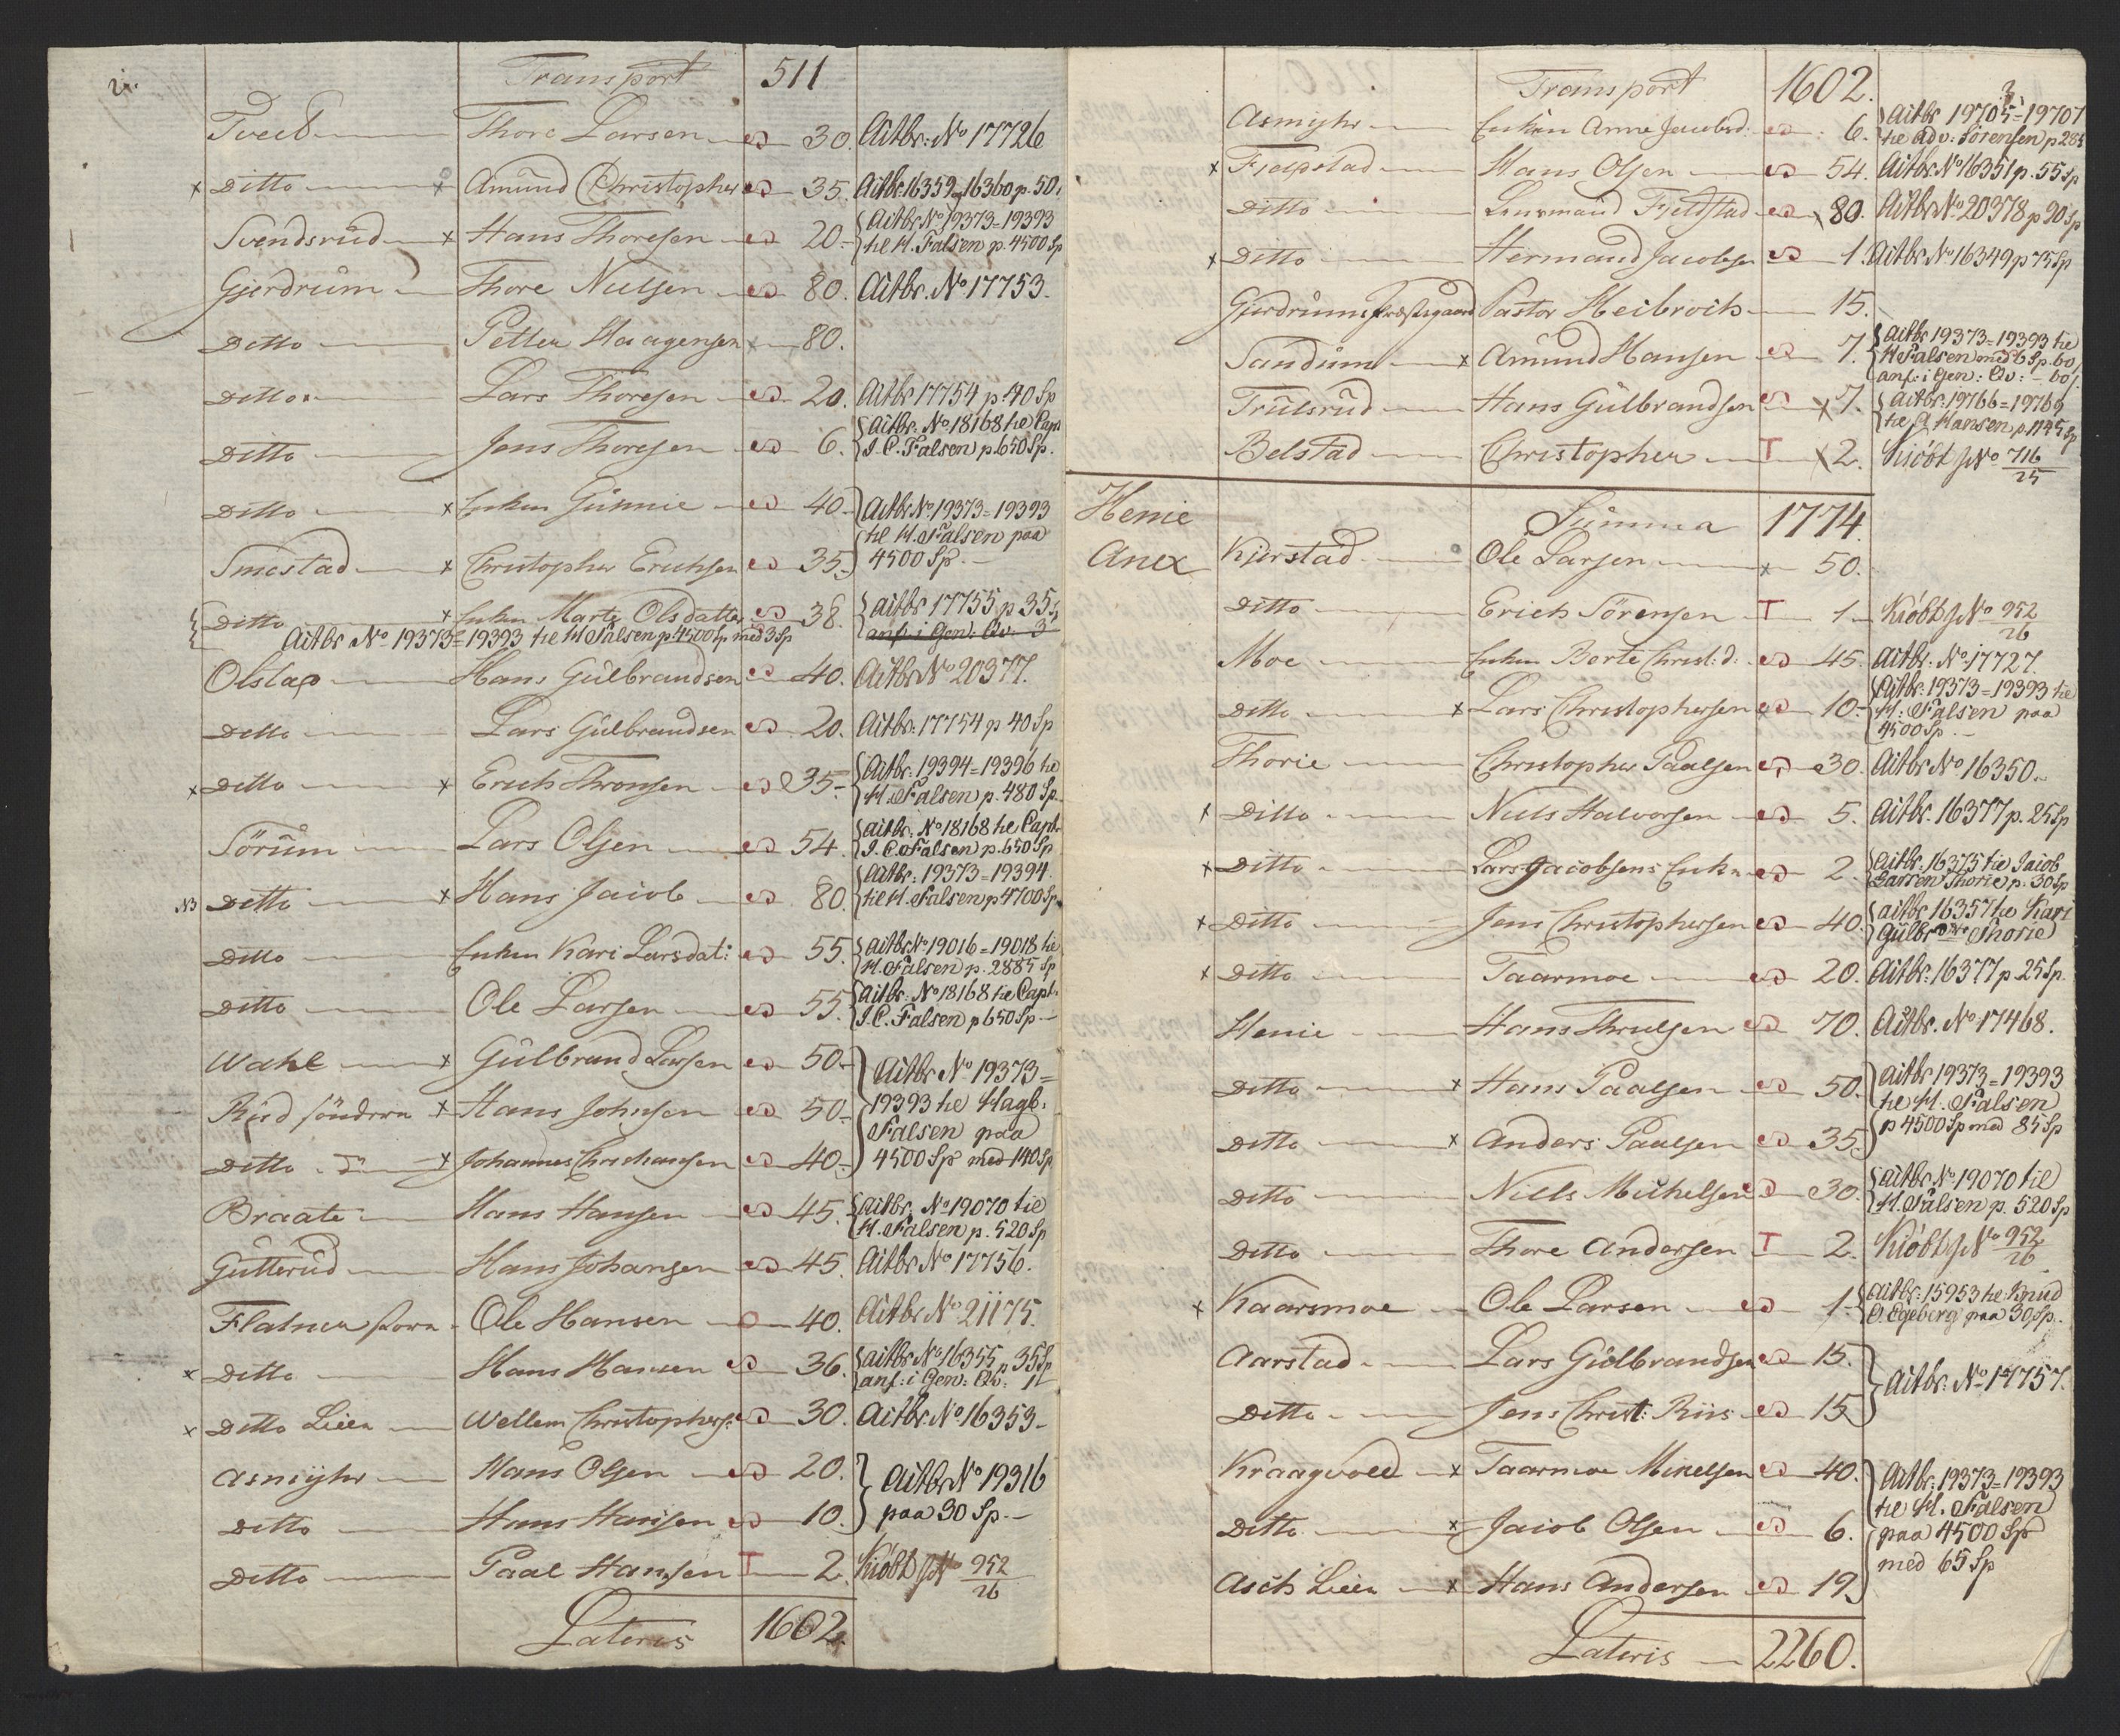 2.
Transport 511
Tveed Thore Larsen 30. Aitbr: No 17726
x Ditto x Amund Christopher 35. Aitbr 16359 = 16360 p. 50.
Svendsrud x Hans Thoresen 20.- Aitbr No 19373=19393
til H. Falsen p. 4500 Sp
Gjerdrum Thore Nielsen 80. Aitbr. No 17753.
Ditto Petter Haagensen x 80.
Ditto Lars Thoresen 20. Aitbr 17754 p. 40 Sp
Ditto Jens Thoresen 6. Aitbr. No 18168 til Capt
I. C. Falsen p. 650 Sp.
Ditto x Enken Gunnie 40.- Aitbr No 19373=19393
til H. Falsen paa
Smestad x Christopher Erichsen 35.- 4500 Sp.-
Ditto x Enken Marte Olsdatter 38. aitbr 17755 p 35 Sp
anf: i Gen: Qv: 3
Aitbr No 19373=19393 til H Falsen p. 4500 Sp med 3 Sp
Olstad Hans Gulbrandsen 40. Aitbr No 20377.
Ditto Lars Gulbrandsen 20. Aitbr: 17754 p 40 Sp
x Ditto x Erich Thronsen 35.- Aitbr. 19394=19396 til
H. Falsen p. 480 Sp.
Sörum Lars Olsen 54. aitbr: No 18168 til Capt.
I. C. Falsen p. 650 Sp
N3 Ditto x Hans Jacob 80. Aitbr: 19373=19394.
til H. Falsen p 4700 Sp.
Ditto Enken Kari Larsdat: 55. aitbr No 19016=19018 til
H. Falsen p. 2885 Sp
Ditto Ole Larsen 55. Aitbr: No 18168 til Capt.
I. C. Falsen p 650 Sp.-
Wahl x Gulbrand Larsen 50.- Aitbr No 19373=
Ruud söndern x Hans Johnsen 50.- 19393 til Hagb.
Falsen paa
Ditto do x Johannes Christiansen 40.- 4500 Sp med 140 Sp
Braate Hans Hansen 45. aitbr. No 19070 til
H. Falsen p. 520 Sp
Gutterud Hans Johansen 45. Aitbr No 17756.
Flatner store Ole Hansen 40. Aitbr No 21175.
x Ditto Hans Hansen 36. aitbr No 16355 p 35 Sp
anf: i Gen: Qv: 1
x Ditto Lien Wellem Christophers: 30. Aitbr. No 16353-
Asmyhr Hans Olsen 20. Aitbr No 19316
Ditto Hans Hansen 10. paa 30 Sp.-
Ditto Paal Hansen T 2. Kiöbt No 952/26
Lateris 1602.
3
Transport 1602.
Asmyhr Enken Anne Jacobsd: 6. Aitbr 19705=19707
til Adv: Sörensen p 285
x Fjelpstad Hans Olsen 54. Aitbr No 16351 p. 55 Sp
Ditto Lensmand Fjeldstad 80. Aitbr No 20378 p 90 Sp
x Ditto Hermand Jacobsen 1. Aitbr No 16349 p 75 Sp
Gjerdrums Præstegaard Pastor Heibroch 15.
Sandum x Amund Hansen 7. aitbr 19373=19393 til
H Falsen med 6 Sp. 60
anf: i Gen: Qv: - 60
Trulsrud Hans Gulbrandsen x 7. Aitbr: 19766=19769
til A Hansen p. 1745 Sp
Belstad Christopher T x 2. Kiöbt No 716/25
Henie
Anex
Summa 1774.
Kierstad Ole Larsen x 50.
Ditto Erich Sörensen T 1. Kiöbt No 952/26
Moe Enken Berte Christ: d: 45. Aitbr: No 17727.
Ditto x Lars Christophersen 10.- Aitbr: 19373=19393 til
H. Falsen paa
4500 Sp.-
Thorie Christopher Paalsen 30. Aitbr No 16350.
x Ditto Niels Halvorsen 5. Aitbr. 16377 p. 25 Sp
x Ditto Lars Jacobsens Enke 2. Aitbr. 16375 til Jacob
Larsen Thorie p. 30 Sp
x Ditto Jens Christophersen 40. aitbr 16357 til Kari
Gulbr Thorie
x Ditto Taarmoe 20. Aitbr: 16377 p 25 Sp.
Henie Hans Thrulsen 70. Aitbr. No 17468.
Ditto x Hans Paalsen 50. Aitbr 19373=19393
til H. Falsen
Ditto x Anders Paalsen 35. p 4500 Sp med 85 Sp
Ditto Niells Michelsen 30. aitbr No 19070 til
H. Falsen p. 520 Sp
Ditto Thore Andersen T 2. Kiöbt No 952/26
x Kaarsmoe Ole Larsen 1- aitbr: 15953 til Knud
O. Egeberg paa 30 Sp.
Aarstad Lars Gulbrandsen 15. Aitbr: No 17757.
Ditto Jens Christ: Riis 15
Kraagvold x Taarmoe Mikelsen 40. Aitbr: 19373=19393
til H. Falsen
Ditto x Jacob Olsen 6. paa 4500 Sp
med 65 Sp
Asch Lien x Hans Andersen 19.
Lateris 2260.